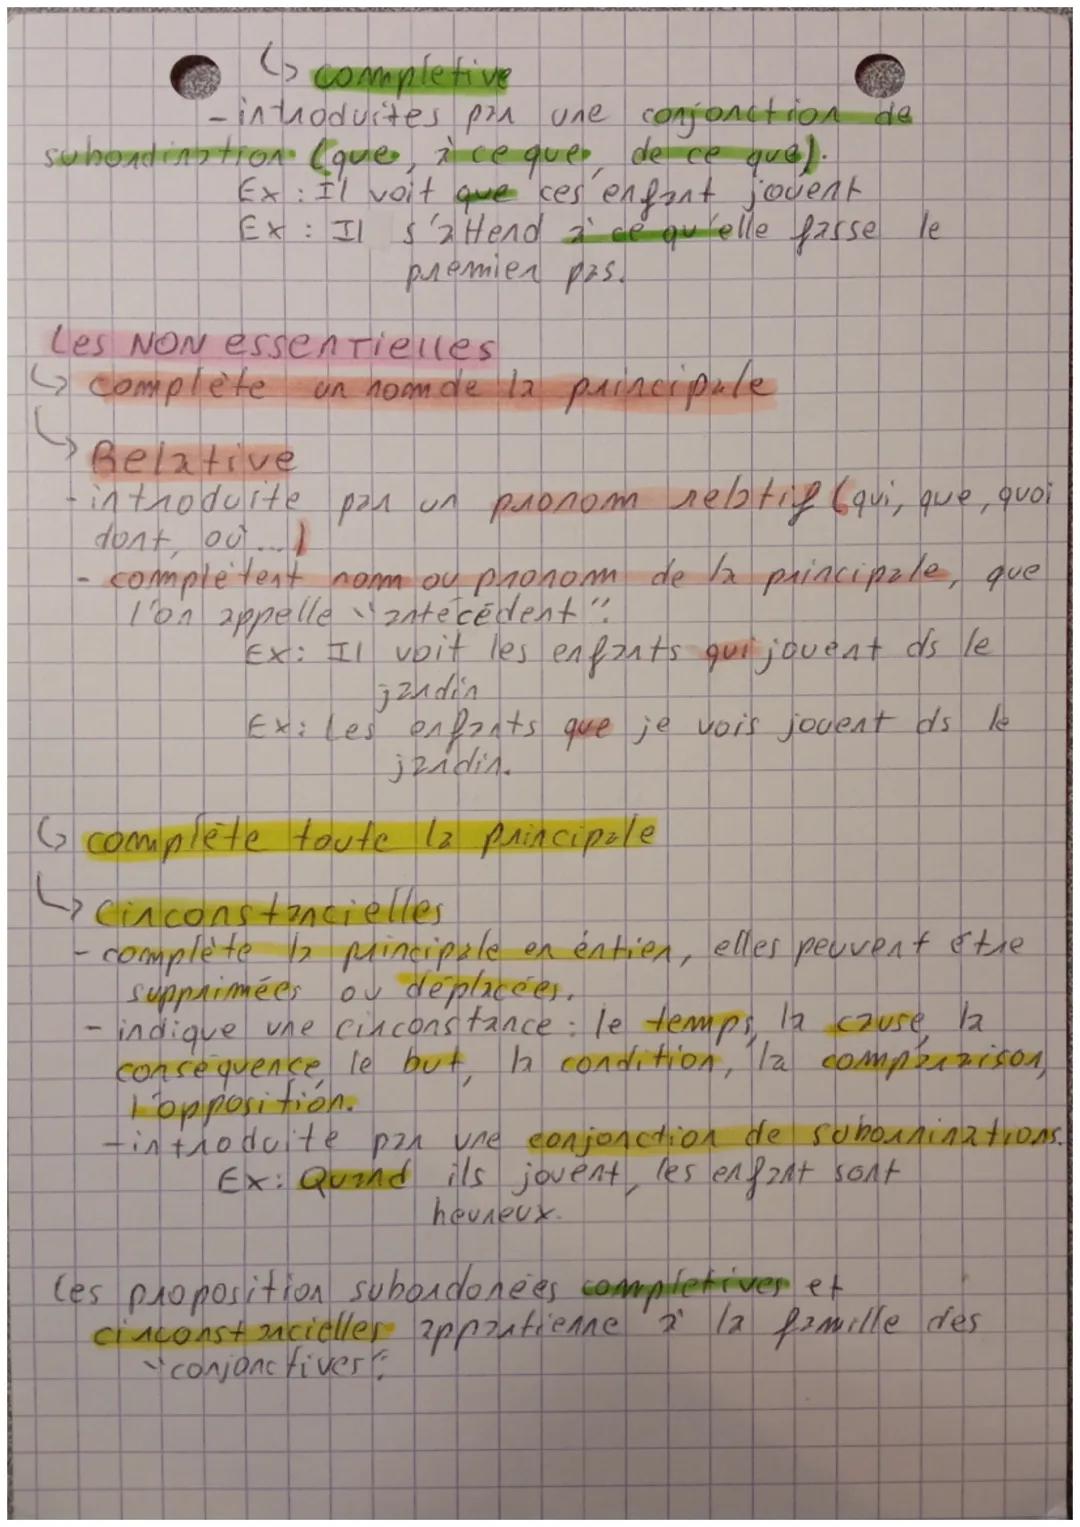 ↳ complétive
- introduites par une conjonction de
subordination (que, à ce que, de ce que).
Ex : Il voit que ces enfant jouent
Ex : Il s'attend à ce qu'elle fasse le
premier pas.
Les NON essentielles
↳ complète un nom de la principale
↳ Relative
- introduite par un pronom relatif (qui, que, quoi
dont, où...)
- complètent nom ou pronom de la principale, que
l'on appelle "antécédent".
Ex: Il voit les enfants qui jouent ds le
jardin
Ex: Les enfants que je vois jouent ds le
jardin.
↳ complète toute la principale
↳ Circonstancielles
- complète la principale en entier, elles peuvent être
supprimées ou déplacées.
- indique une circonstance : le temps, la cause, la
conséquence, le but, la condition, la comparaison,
l'opposition.
- introduite par une conjonction de suborninations.
Ex: Quand ils jouent, les enfant sont
heureux.
Les proposition subordonées complétives et
circonstancielles appartienne à la famille des
"conjonctives".